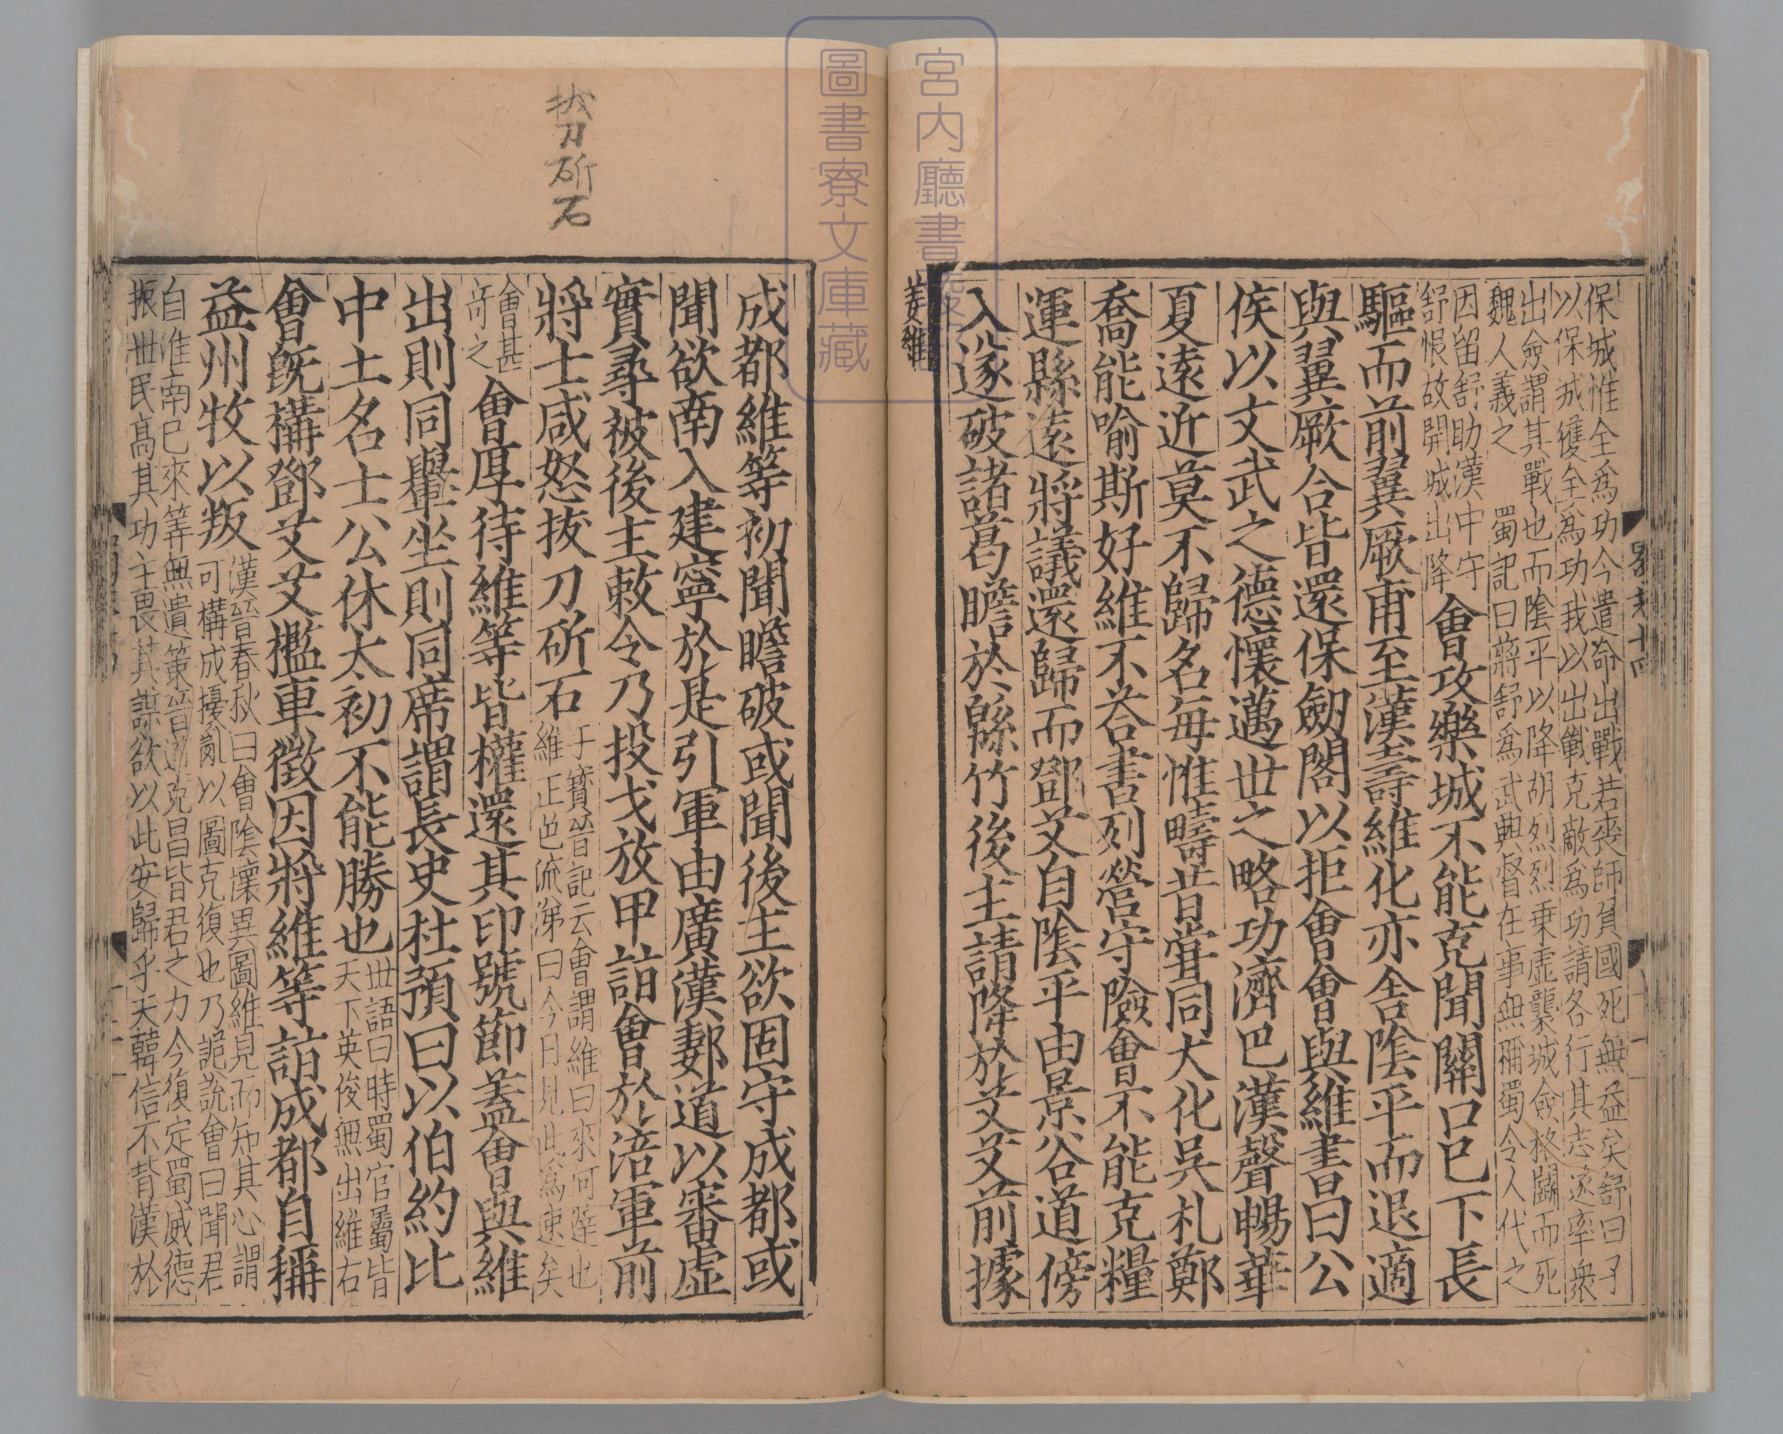 保城惟全爲功今遣命出戰若喪師負國死無益矣舒曰子
以保城獲全爲功我以出戰克敵爲功請各行其志遂率衆
出僉謂其戰也而陰平以降胡烈烈乗虛襲城僉格鬭而死
魏人義之 蜀記曰蔣舒爲武興督在事無稱蜀令人代之
因留舒助漢中守
舒恨故開城出降
會攻樂城不能克聞關口已下長
驅而前翼厥甫至漢壽維化亦舍陰平而退適
與翼厥合皆還保劒閣以拒會會與維書曰公
侯以文武之德懷邁世之略功濟巴漢聲暢華
夏遠近莫不歸名毎惟疇昔甞同大化吳札鄭
喬能喻斯好維不荅書列營守險會不能克糧
運縣逺將議還歸而鄧艾自陰平由景谷道傍
入遂破諸葛瞻於緜竹後主請降於艾艾前據
姜維
成都維等初聞瞻破或聞後主欲固守成都或
聞欲南入建寧於是引軍由廣漢郪道以審虛
實尋被後主敕令乃投戈放甲詣會於涪軍前
將士咸怒拔刀斫石
于寶晉記云會謂維曰來何遲也
維正色流涕曰今日見此爲速矣
會甚
奇之
會厚待維等皆權還其印號節蓋會與維
出則同轝坐則同席謂長史杜預曰以伯約比
中土名士公休太初不能勝也
世語曰時蜀官屬皆
天下英俊無出維右
會旣構鄧艾艾檻車徵因將維等詣成都自稱
益州牧以叛
漢晉春秋曰會陰懷異圖維見而知其心謂
可構成擾亂以圖克復也乃詭說會曰聞君
自淮南已來筭無遺策晉道克昌皆君之力今復定蜀威德
振世民髙其功主畏其謀欲以此安歸乎夫韓信不背漢於
拔刀斫石
宮内廳書陵部
圖書寮文庫藏